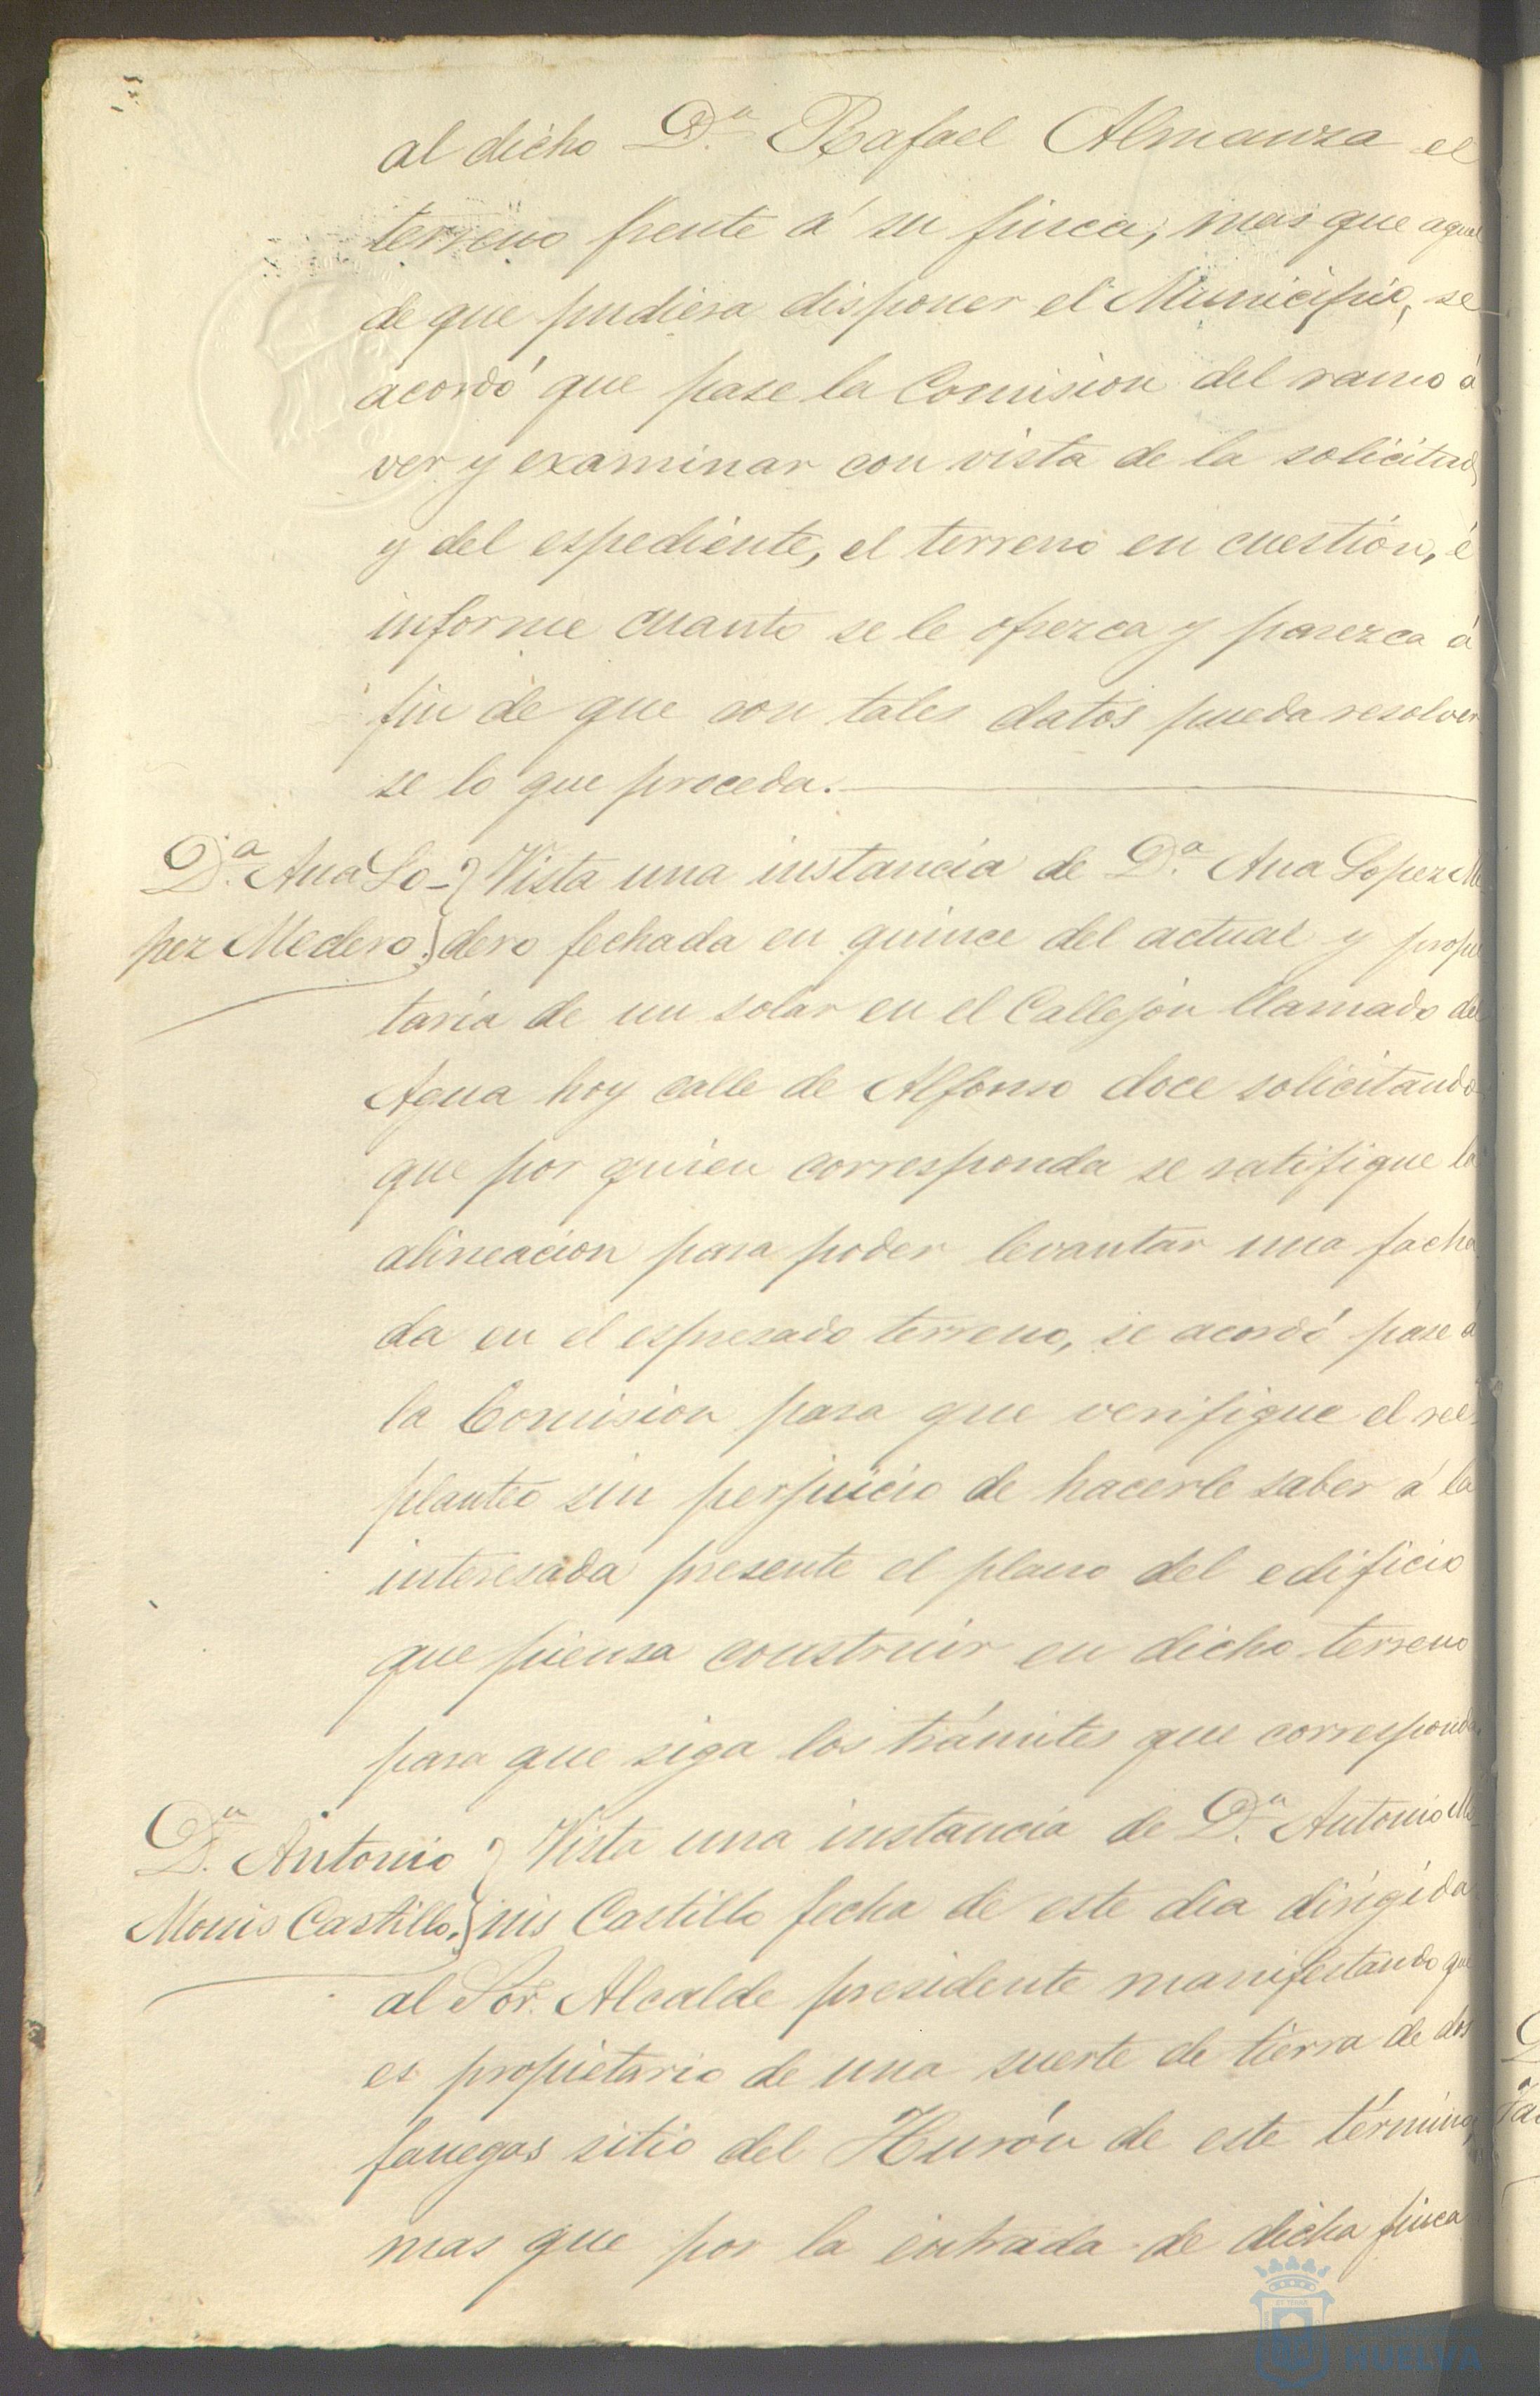 al dicho D.n Rafael Almanza el
terreno frente á su finca, mas que aquel
de que pudiera disponer el Municipio, se
acordó que pase la Comision del ramo á
ver y examinar con vista de la solicitud
y del espediente, el terreno en cuestión, é
informe cuanto se le ofrezca y parezca á
fin de que con tales datos pueda resolver
se lo que proceda.
D.ª Ana Lo-
pez Medero.
Vista una instancia de D.ª Ana Lopez Me
dero fechada en quince del actual y propie
taria de un solar en el Callejón llamado del
Agua hoy calle de Alfonso doce solicitando
que por quien corresponda se ratifique la
alineacion para poder levantar una facha
da en el espresado terreno, se acordó pase á
la Comision para que verifique el re
planteo sin perjuicio de hacerle saber á la
interesada presente el plano del edificio
que piensa construir en dicho terreno
para que siga los trámites que corresponda.
D.n Antonio
Monis Castillo.
Vista una instancia de D.n Antonio Mo
nis Castillo fecha de este dia dirigida
al Sor. Alcalde presidente manifestando que
es propietario de una suerte de tierra de dos
fanegas sitio del Hurón de este término,
mas que por la entrada de dicha finca
HUELVA